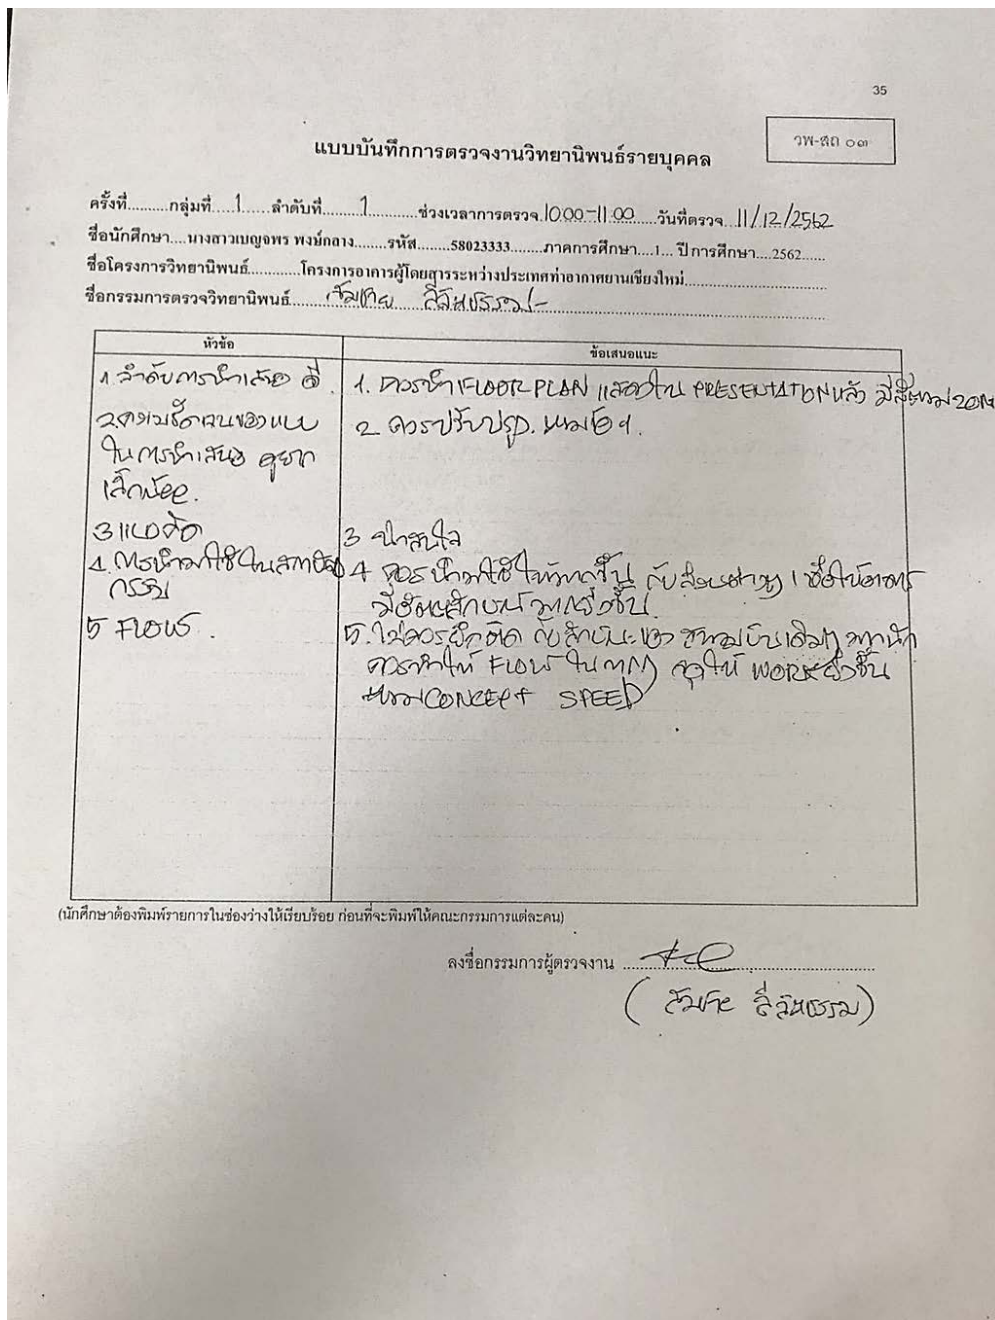 35
วพ-สถ ๐๓
แบบบันทึกการตรวจงานวิทยานิพนธ์รายบุคคล
ครั้งที่..........กลุ่มที่.....1......ลำดับที่.........1..........ช่วงเวลาการตรวจ.10.00-11.00.....วันที่ตรวจ..11/12/2562
ชื่อนักศึกษา....นางสาวเบญจพร พงษ์กลาง........รหัส........58023333........ภาคการศึกษา....1... ปีการศึกษา....2562......
ชื่อโครงการวิทยานิพนธ์............โครงการอาคารผู้โดยสารระหว่างประเทศท่าอากาศยานเชียงใหม่
ชื่อกรรมการตรวจวิทยานิพนธ์
หัวข้อ
ข้อเสนอแนะ
1. ลำดับการนำเสนอ ดี.
1. ควรนำ FLOOR PLAN แสดงใน PRESENTATION หลัง
2. ความชัดเจนของแบบ
ในการนำเสนอ ดูยาก
เล็กน้อย.
2 ควรปรับปรุง.
3 แนวคิด
3 น่าสนใจ
4. การนำมาใช้ในสถาปัตย
กรรม
4 ควรนำมาใช้ให้มากขึ้น กับส่วนต่างๆ เพื่อให้อาคาร
มีอัตลักษณ์มากยิ่งขึ้น.
5 FLOW.
5. ไม่ควรยึดติด กับลักษณะของ สนามบินเดิมๆ มากนัก
ควรทำให้ FLOW ในทุกๆ จุดให้ WORK ยิ่งขึ้น
ตาม CONCEPT SPEED
(นักศึกษาต้องพิมพ์รายการในช่องว่างให้เรียบร้อย ก่อนที่จะพิมพ์ให้คณะกรรมการแต่ละคน)
ลงชื่อกรรมการผู้ตรวจงาน